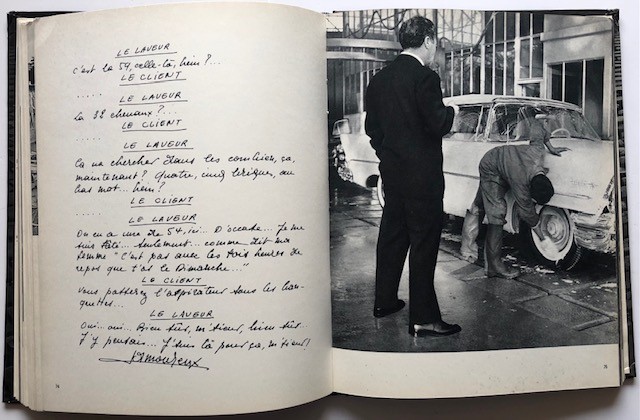 LE LAVEUR
C'est la 57, celle-là, hein ?...
LE CLIENT
.....
LE LAVEUR
La 32 chevaux ?...
LE CLIENT
.....
LE LAVEUR
Ça va chercher dans les combien, ça,
maintenant ? Quatre, cinq briques, au
bas mot... hein ?
LE CLIENT
.....
LE LAVEUR
On en a une de 54, ici... D'occase... Je me
suis tâté... seulement... comme dit ma
femme "C'est pas avec les trois heures de
repos que t'as le Dimanche..."
LE CLIENT
Vous passerez l'aspirateur sous les ban-
quettes...
LE LAVEUR
Oui... oui... Bien sûr, m'sieur, bien sûr...
J'y pensais... J'suis là pour ça, m'sieur !